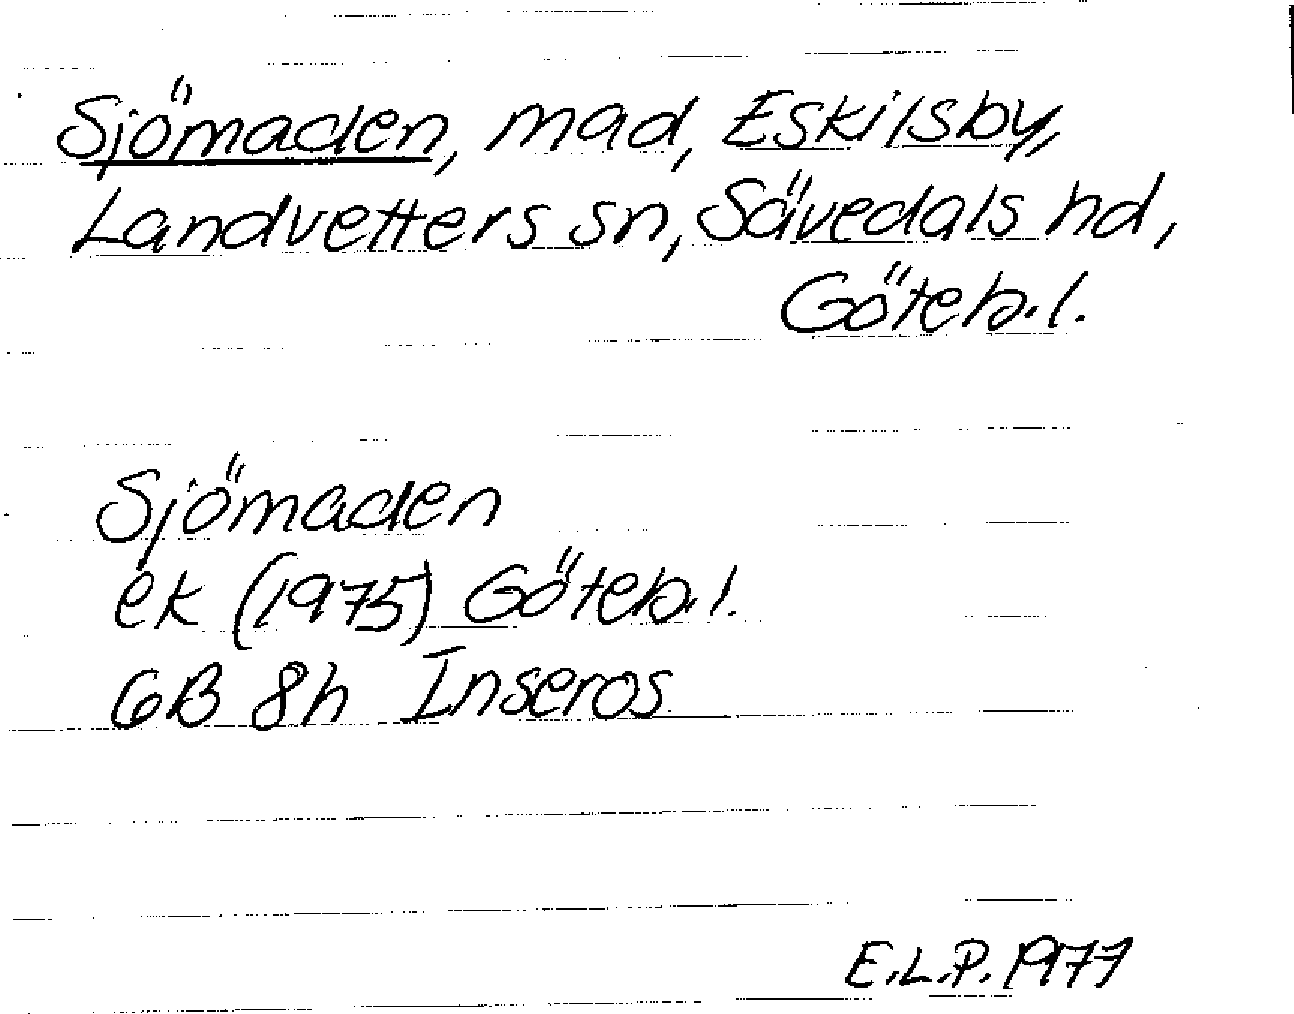 Sjömaden, mad, Eskilsby,
Landvetters sn, Sävedals hd,
Göteb.l.
Sjömaden
ek (1975) Göteb.l.
6B 8h Inseros
E.L.P. 1977